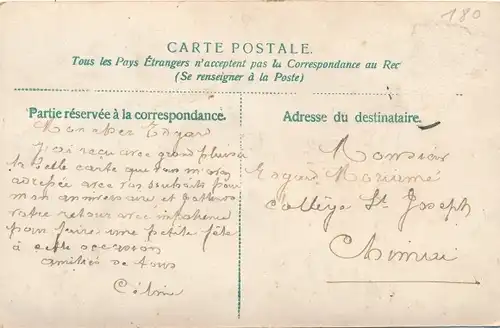 180
CARTE POSTALE.
Tous les Pays Étrangers n'acceptent pas la Correspondance au Rec
(Se renseigner à la Poste)
Partie réservée à la correspondance.
Mon cher Edgard
J'ai reçu avec grand plaisir
la belle carte que vous m'avez
adressée avec vos souhaits pour
mon anniversaire et j'attends
votre retour avec impatience
pour faire une petite fête
à cette occasion
amitiés de tous
Adresse du destinataire.
Monsieur
Edgard
Collège St Joseph
Chimai